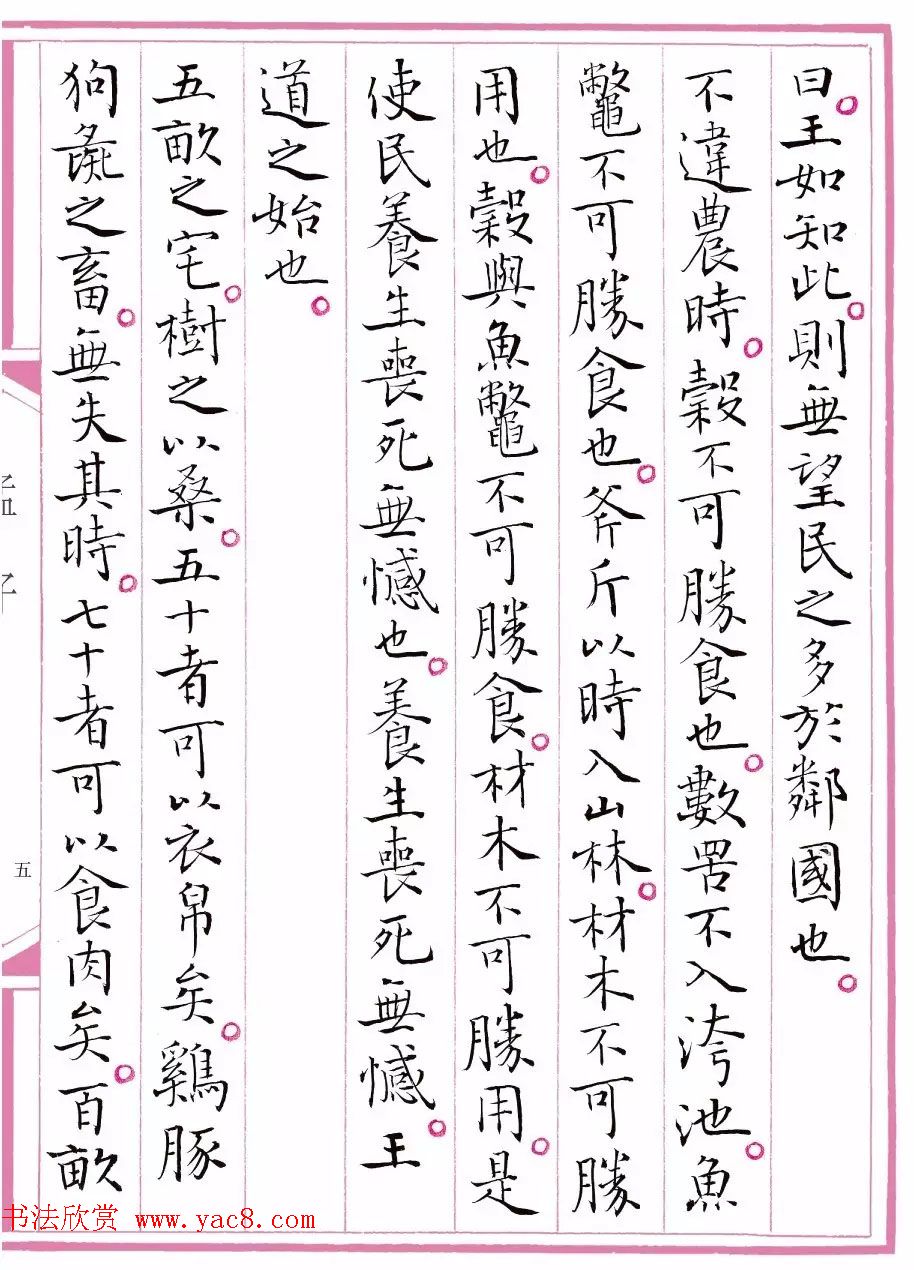 曰。王如知此。則無望民之多於鄰國也。
不違農時。穀不可勝食也。數罟不入洿池。魚
鼈不可勝食也。斧斤以時入山林。材木不可勝
用也。穀與魚鼈不可勝食。材木不可勝用。是
使民養生喪死無憾也。養生喪死無憾。王
道之始也。
五畝之宅。樹之以桑。五十者可以衣帛矣。雞豚
狗彘之畜。無失其時。七十者可以食肉矣。百畝
孟子
五
书法欣赏 www.yac8.com